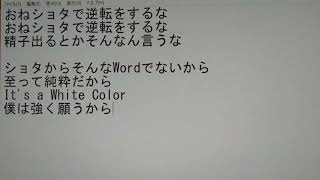 おねショタで逆転をするな
おねショタで逆転をするな
精子出るとかそんなん言うな

ショタからそんなWordでないから
至って純粋だから
It's a White Color
僕は強く願うから